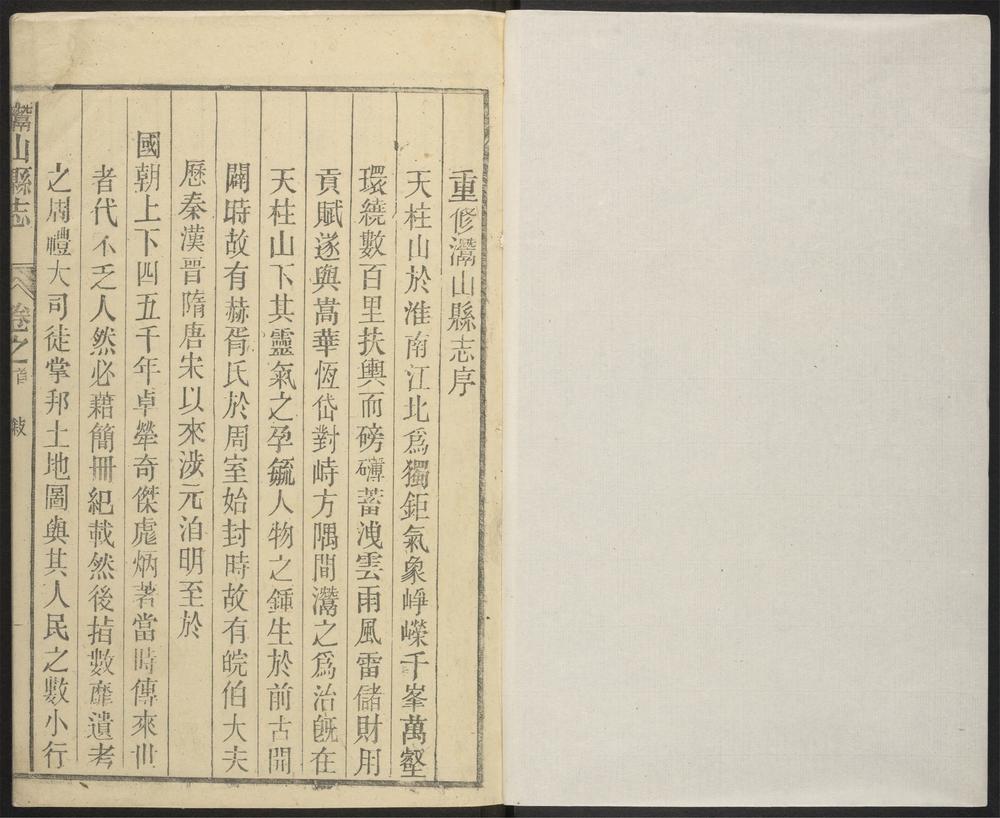 重修灊山縣志序
天柱山於淮南江北爲獨鉅氣象崢嶸千峯萬壑
環繞數百里扶輿而磅礴蓄洩雲雨風雷儲財用
貢賦遂與嵩華恆岱對峙方隅間灊之爲治旣在
天柱山下其靈氣之孕毓人物之鍾生於前古開
闢時故有赫胥氏於周室始封時故有皖伯大夫
歷秦漢晉隋唐宋以來涉元洎明至於
國朝上下四五千年卓犖奇傑彪炳著當時傳來世
者代不乏人然必藉簡冊紀載然後指數靡遺考
之周禮大司徒掌邦土地圖與其人民之數小行
灊山縣志 卷之首 敍